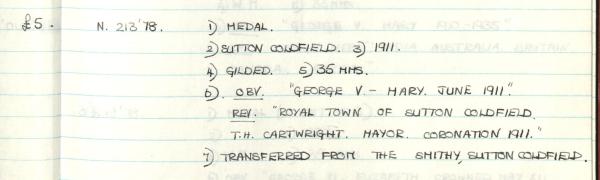 £5. N. 213'78. 1) MEDAL.
2) SUTTON COLDFIELD. 3) 1911.
4) GILDED. 5) 35 MMS.
6). OBV. "GEORGE V. - MARY. JUNE 1911."
REV. "ROYAL TOWN OF SUTTON COLDFIELD.
T.H. CARTWRIGHT. MAYOR. CORONATION 1911."
7) TRANSFERRED FROM THE SMITHY, SUTTON COLDFIELD.